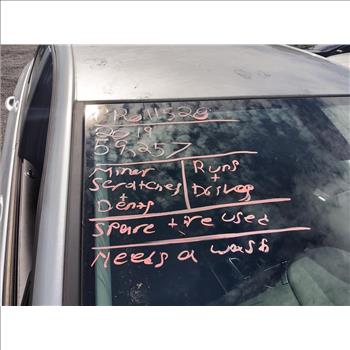 2019
59,257
Miner
Scratches
+
Dents
Runs
+
Drives
Spare tire used
Needs a wash